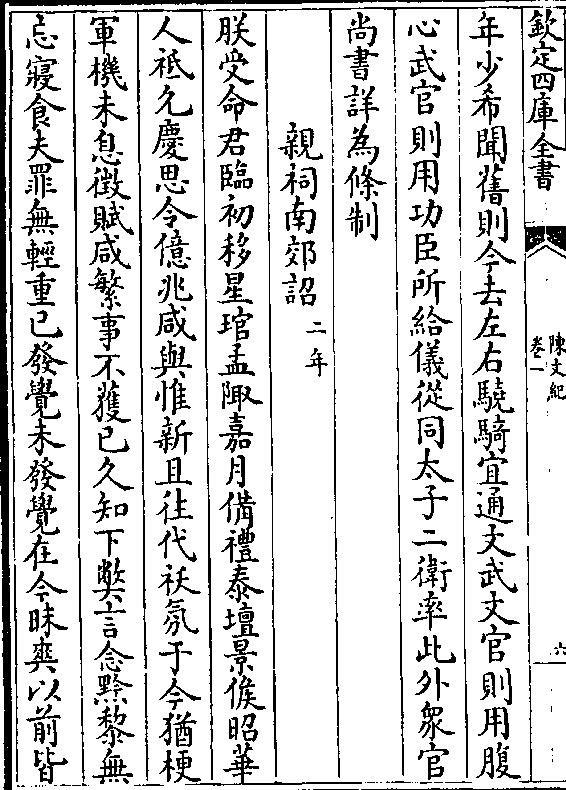 欽定四庫全書
陳文紀
卷一
六
年少希聞舊則今去左右驍騎宜通文武文官則用腹
心武官則用功臣所給儀從同太子二衛率此外衆官
尚書詳為條制
親祠南郊詔二年
朕受命君臨初移星琯孟陬嘉月備禮泰壇景候昭華
人祗允慶思令億兆咸與惟新且往代祅氛于今猶梗
軍機未息徴賦咸繁事不獲已久知下弊言念黔黎無
忘寢食夫罪無輕重已發覺未發覺在今昧爽以前皆